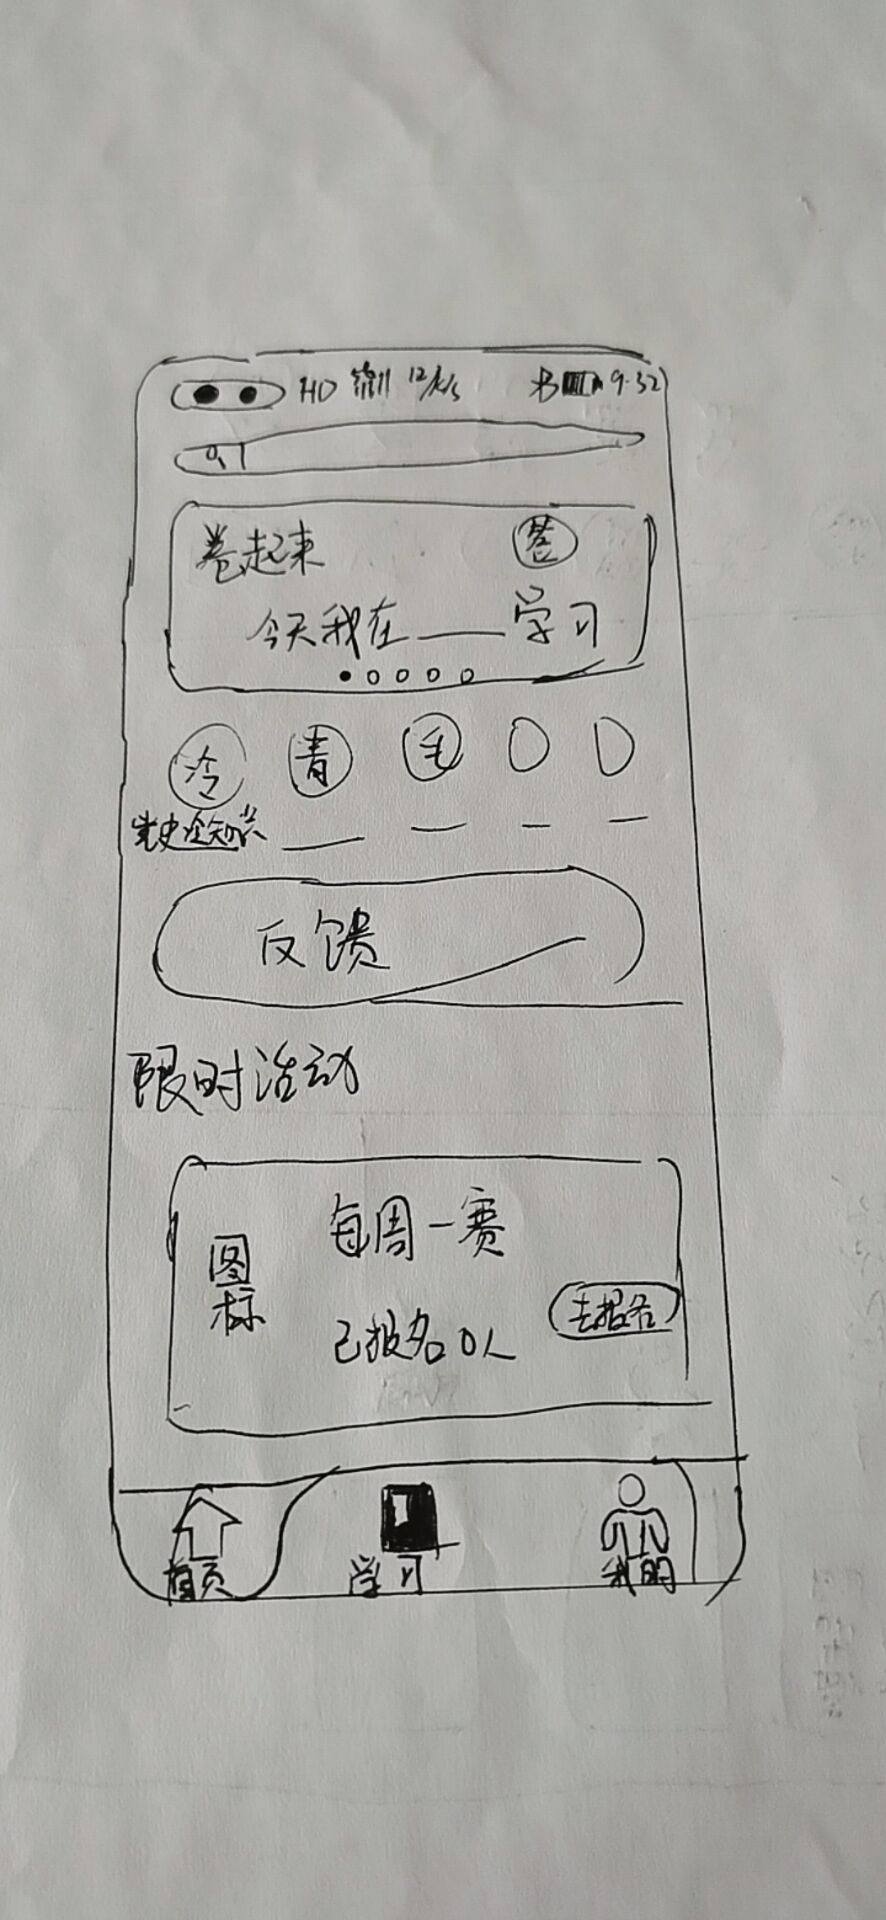 HD 12K/s 9:32
卷起来 答
今天我在____学习
冷 青 毛
党史冷知识
反馈
限时活动
图标
每周一赛
已报名0人
去报名
首页 学习 我的